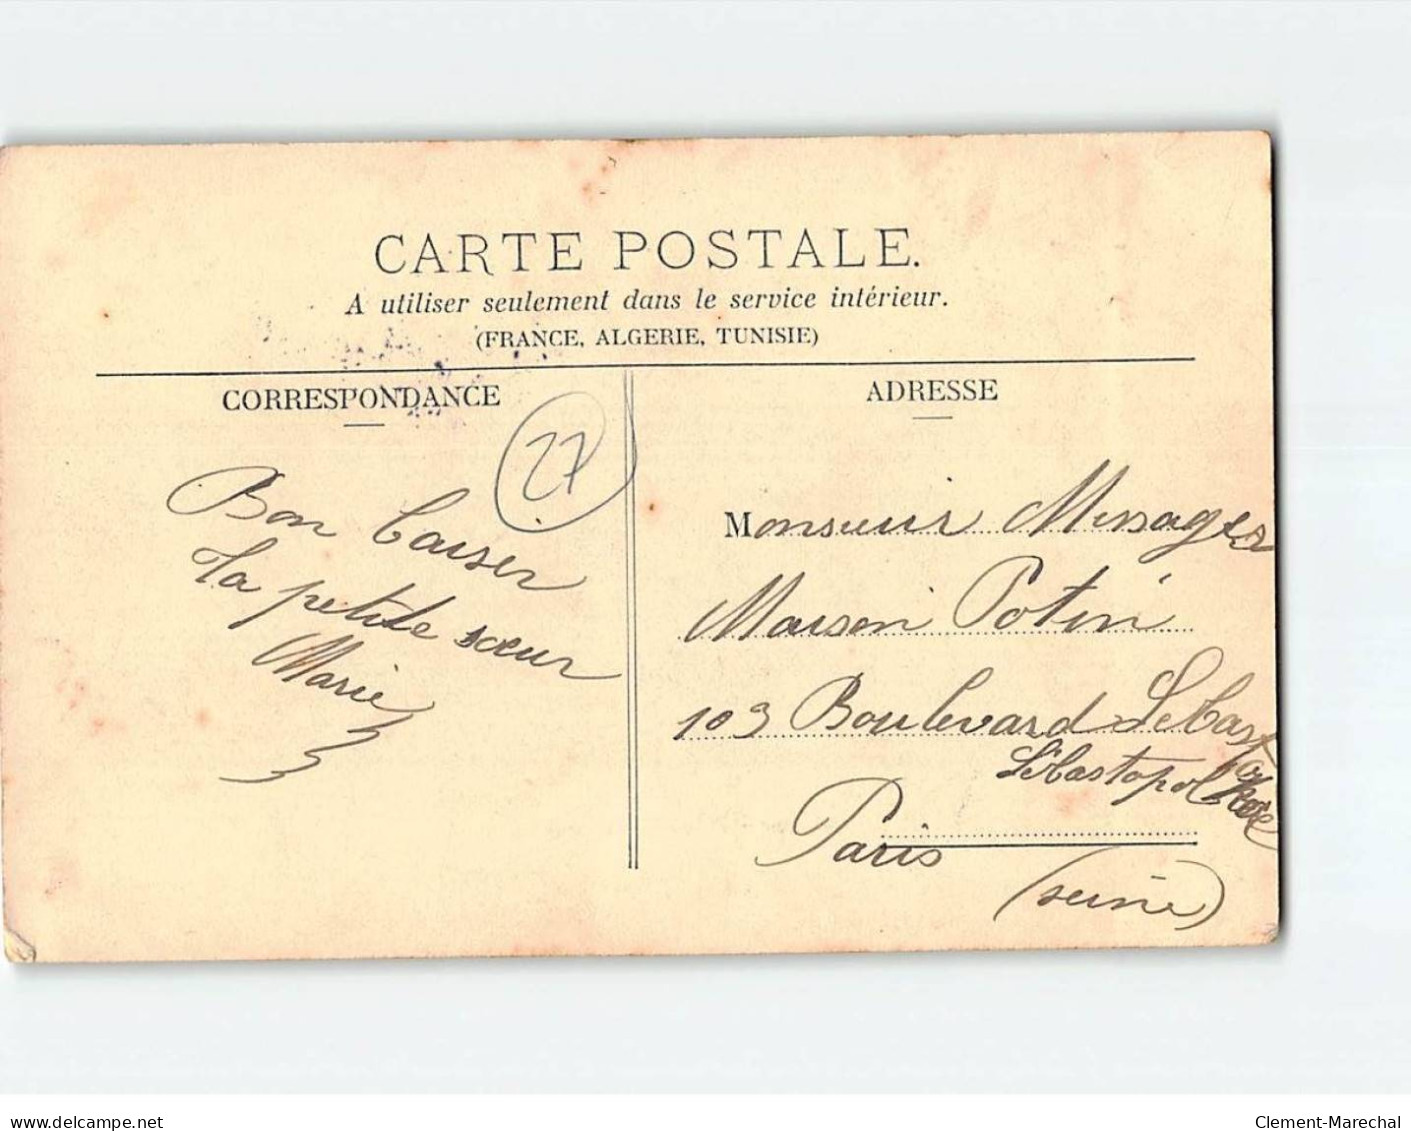 CARTE POSTALE.
A utiliser seulement dans le service intérieur.
(FRANCE, ALGERIE, TUNISIE)
CORRESPONDANCE
27
Bon baiser
ta petite sœur
Marie
ADRESSE
Monsieur Messager
Maison Potin
103 Boulevard Sebast
Sébastopol
Paris
(seine)
delcampe.net
Clement-Marechal